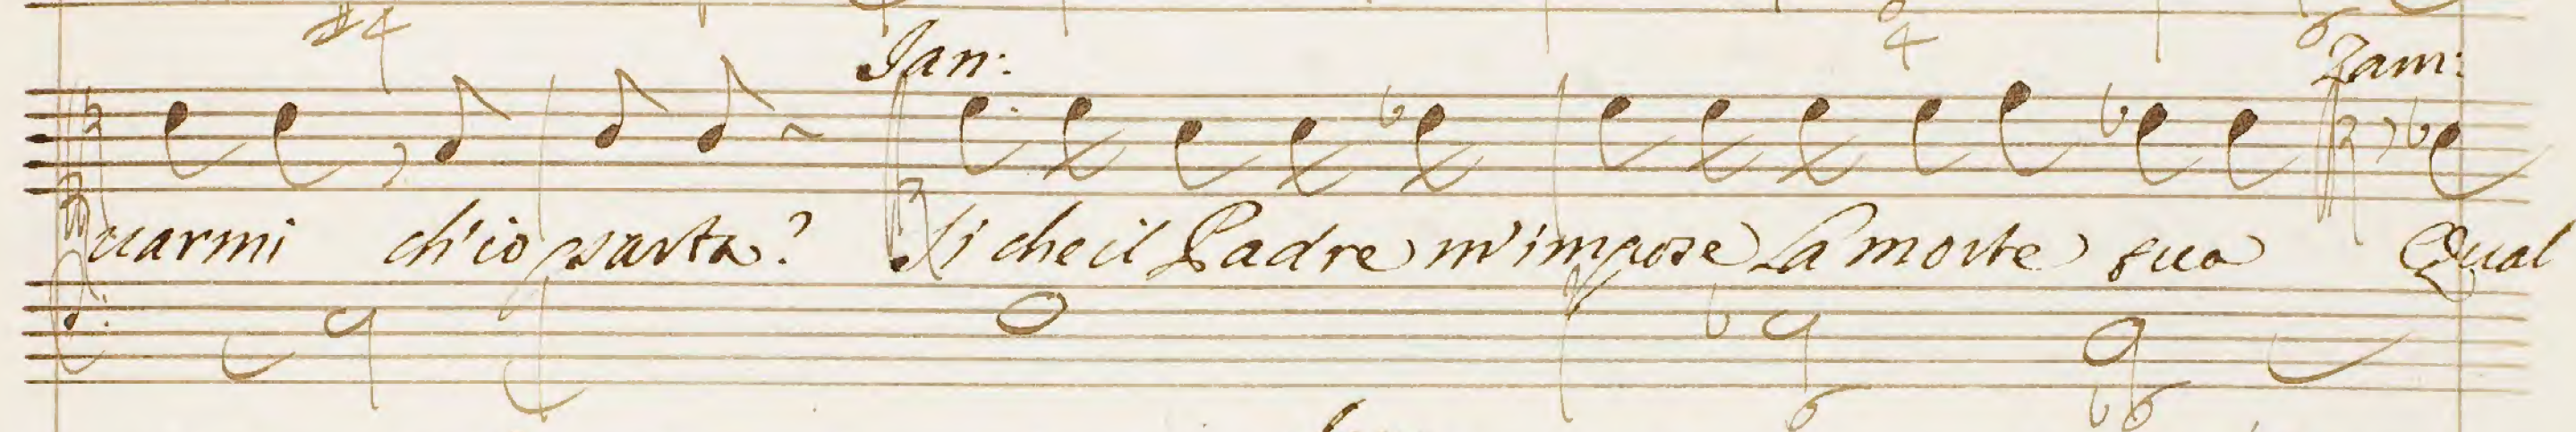 #4 4
Ian: Zam:
uarmi ch'io parta? Si che il Padre m'impose La morte sua Qual
6 b6